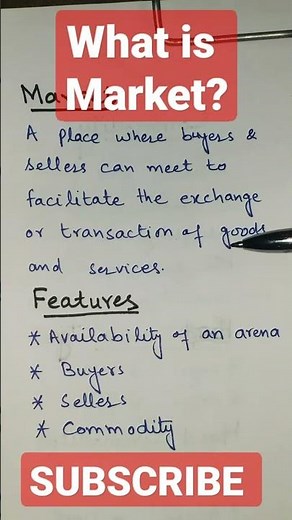 What is
Market?
A place where buyers &
sellers can meet to
facilitate the exchange
or transaction of goods
and services.
Features
* Availability of an arena
* Buyers
* Sellers
* Commodity
SUBSCRIBE